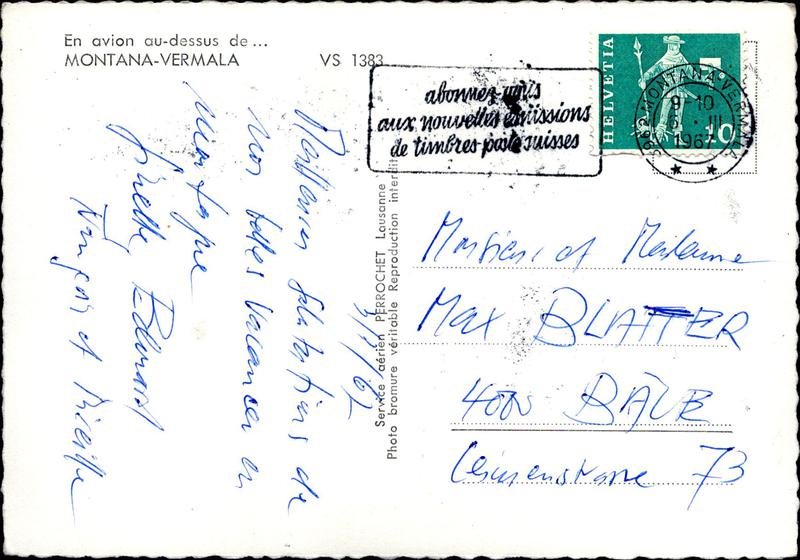 En avion au-dessus de ...
MONTANA-VERMALA
VS 1383
abonnez-vous
aux nouvelles émissions
de timbres poste suisses
HELVETIA
10
3962 MONTANA-VERMALA
9-10
III
1967
Service aérien PERROCHET Lausanne
Photo bromure véritable Reproduction interdite
Meilleures salutations de
nos belles vacances en
Montagne
Edouard
François et
Monsieur et Madame
Max BLATTER
4000 BÂLE
73